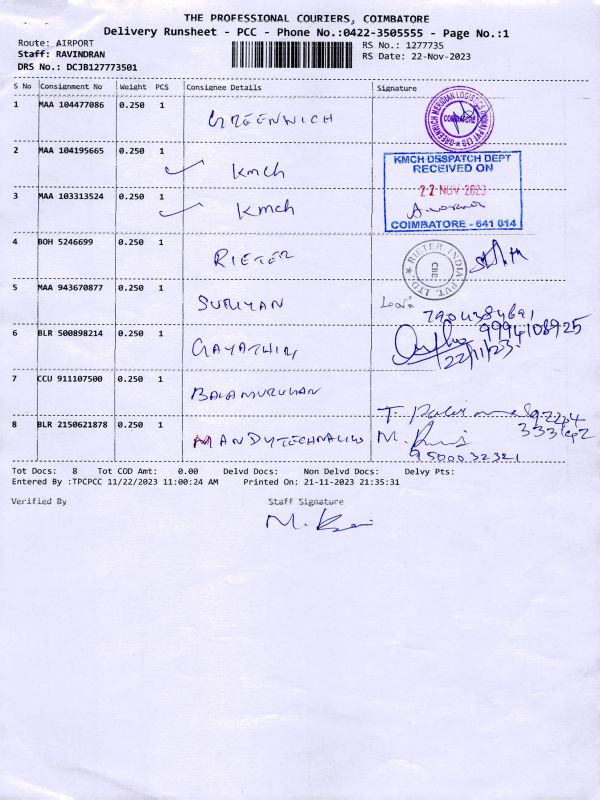 THE PROFESSIONAL COURIERS, COIMBATORE
Delivery Runsheet - PCC - Phone No.:0422-3505555 - Page No.:1
Route: AIRPORT
Staff: RAVINDRAN
DRS No.: DCJB127773501
RS No.: 1277735
RS Date: 22-Nov-2023
S No Consignment No Weight PCS Consignee Details Signature
1 MAA 104477086 0.250 1 GREENWICH
COIMBATORE
2 MAA 104195665 0.250 1 KMCH
KMCH DESPATCH DEPT
RECEIVED ON
22 NOV 2023
COIMBATORE - 641 014
3 MAA 103313524 0.250 1 KMCH
4 BOH 5246699 0.250 1 RIETER
RIETER INDIA PVT. LTD.
CBE
5 MAA 943670877 0.250 1 SURIYAN
6 BLR 500898214 0.250 1 GAYATHIRI
9994108925
22/11/23
7 CCU 911107500 0.250 1 BALAMURUGAN
8 BLR 2150621878 0.250 1
9500032321
Tot Docs: 8 Tot COD Amt: 0.00 Delvd Docs: Non Delvd Docs: Delvy Pts:
Entered By :TPCPCC 11/22/2023 11:00:24 AM Printed On: 21-11-2023 21:35:31
Verified By Staff Signature